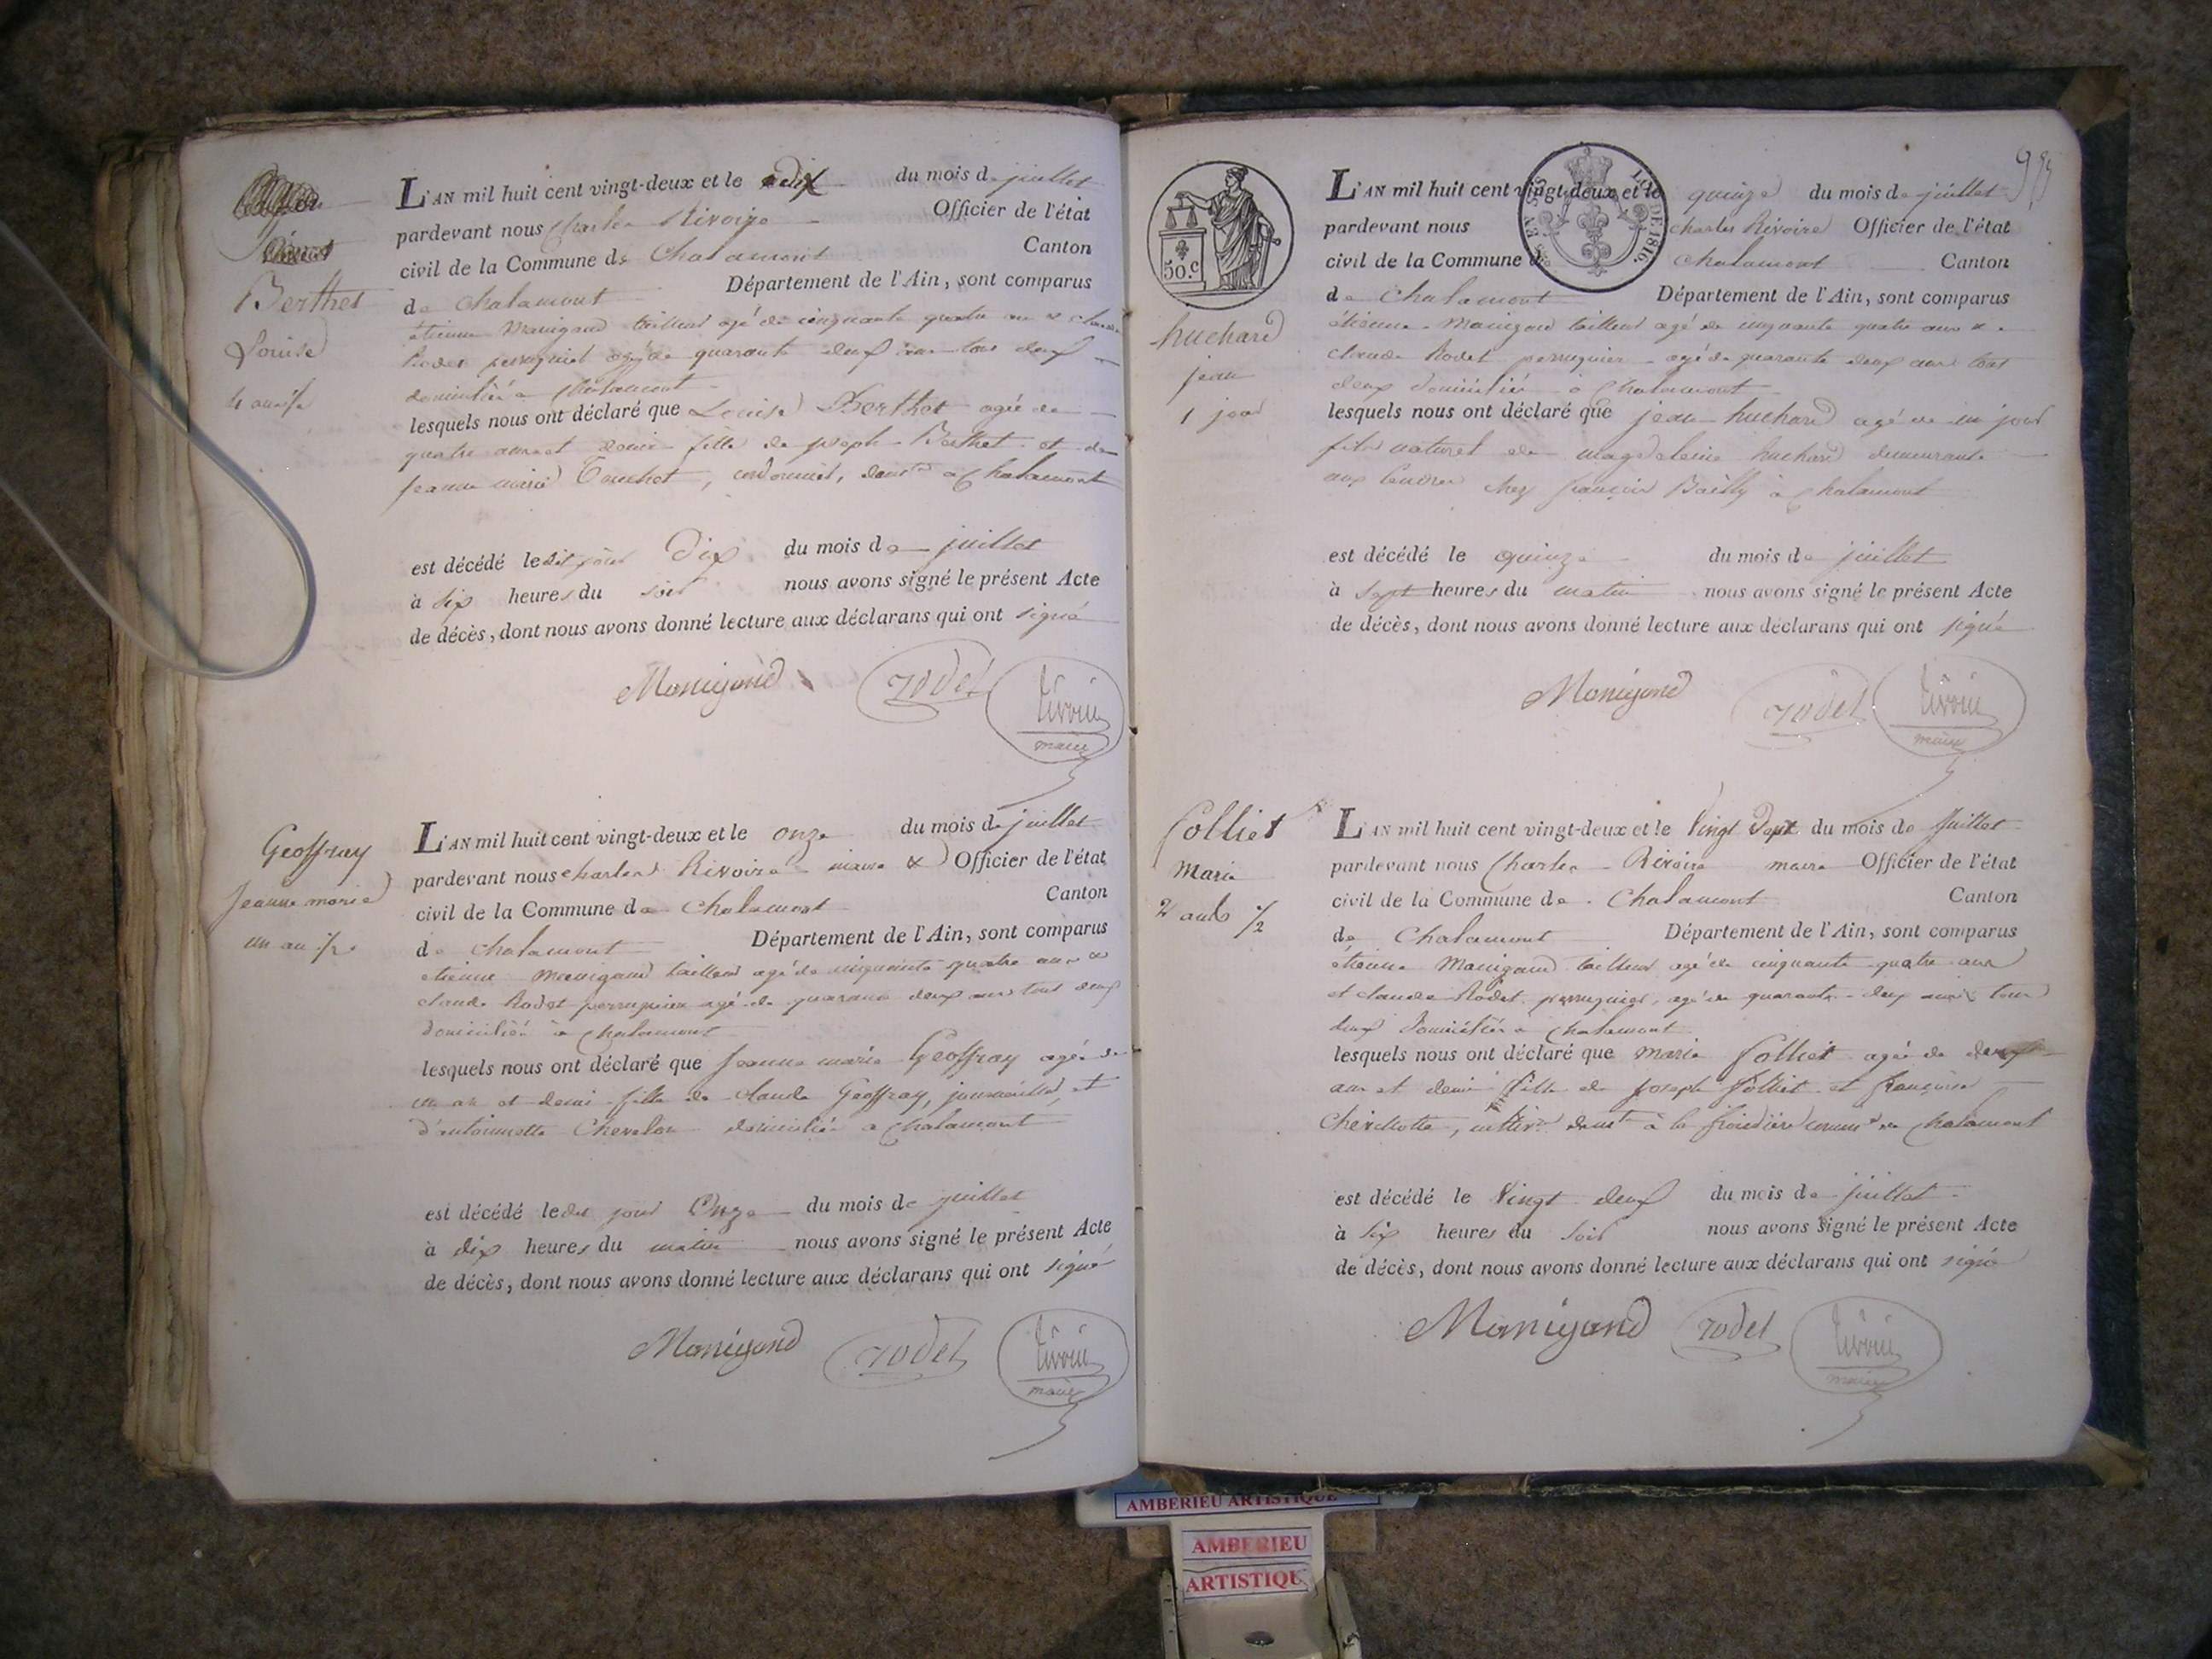 Berthet
Louise
4 ans 1/2
L'AN mil huit cent vingt-deux et le dix du mois de juillet
pardevant nous Charles Rivoire Officier de l'état
civil de la Commune de Chalamont Canton
de Chalamont Département de l'Ain, sont comparus
étienne Manigand tailleur agé de cinquante quatre ans & claude
Rodet perruquier agé de quarante deux ans tous deux
domiciliés a Chalamont
lesquels nous ont déclaré que Louise Berthet agée de
quatre ans et demie fille de joseph Berthet et de
jeanne marie , cordonnier, demt a Chalamont
est décédé ledit jour Dix du mois de juillet
à six heures du soir nous avons signé le présent Acte
de décès, dont nous avons donné lecture aux déclarans qui ont signé
Manigand rodet rivoire
maire
Geoffray
jeanne marie
un an 1/2
L'AN mil huit cent vingt-deux et le onze du mois de juillet
pardevant nous charles Rivoire maire & Officier de l'état
civil de la Commune de Chalamont Canton
de Chalamont Département de l'Ain, sont comparus
etienne Manigand tailleur agé de cinquante quatre ans &
claude Rodet perruquier agé de quarante deux ans tous deux
domiciliés a Chalamont
lesquels nous ont déclaré que jeanne marie Geoffray agée de
un an et demi fille de claude Geoffray, journalier, et
d'antoinette Chevalon domiciliés a Chalamont
est décédé ledit jour Onze du mois de juillet
à dix heures du matin nous avons signé le présent Acte
de décès, dont nous avons donné lecture aux déclarans qui ont signé
Manigand rodet rivoire
maire
50.c
LOI DE 1816.
huchard
jean
1 jour
L'AN mil huit cent vingt-deux et le quinze du mois de juillet
pardevant nous charles Rivoire Officier de l'état
civil de la Commune de Chalamont Canton
de Chalamont Département de l'Ain, sont comparus
étienne Manigand tailleur agé de cinquante quatre ans &
claude Rodet perruquier agé de quarante deux ans tous
deux domiciliés a Chalamont
lesquels nous ont déclaré que jean huchard agé de un jour
fils naturel de magdeleine huchard demeurante
chez françois Bailly à Chalamont
est décédé le quinze du mois de juillet
à sept heures du matin nous avons signé le présent Acte
de décès, dont nous avons donné lecture aux déclarans qui ont signé
Manigand rodet rivoire
maire
Folliet
Marie
2 ans 1/2
L'AN mil huit cent vingt-deux et le Vingt Sept du mois de juillet
pardevant nous Charles Rivoire maire Officier de l'état
civil de la Commune de Chalamont Canton
de Chalamont Département de l'Ain, sont comparus
étienne Manigand tailleur agé de cinquante quatre ans
et claude Rodet perruquier, agé de quarante deux ans tous
deux domiciliés a Chalamont
lesquels nous ont déclaré que Marie Folliet agée de deux
ans et demi fille de joseph Folliet et françoise
demt à la commne de Chalamont
est décédé le Vingt deux du mois de juillet
à six heures du soir nous avons signé le présent Acte
de décès, dont nous avons donné lecture aux déclarans qui ont signé
Manigand rodet rivoire
maire
AMBERIEU ARTISTIQUE
AMBERIEU
ARTISTIQU